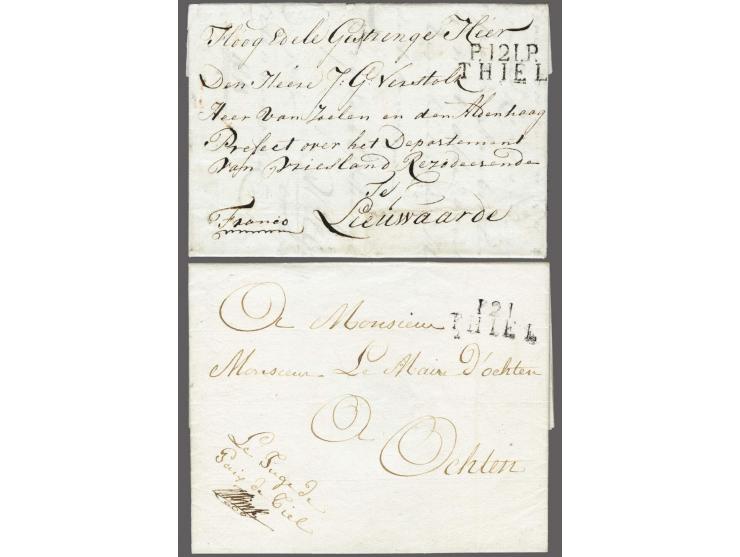 Hoog Edele Gestrenge Heer
P.121.P.
THIEL
Den Heere J: G Verstolk
Heer van Zoelen en den Aldenhaag
Prefect over het Departement
van Vriesland Rezideerende
Te
Franco
Leeuwaarde
121
THIEL
A Monsieur
Monsieur Le Maire D'ochten
A
Ochten
Le Juge de
Paix de Tiel